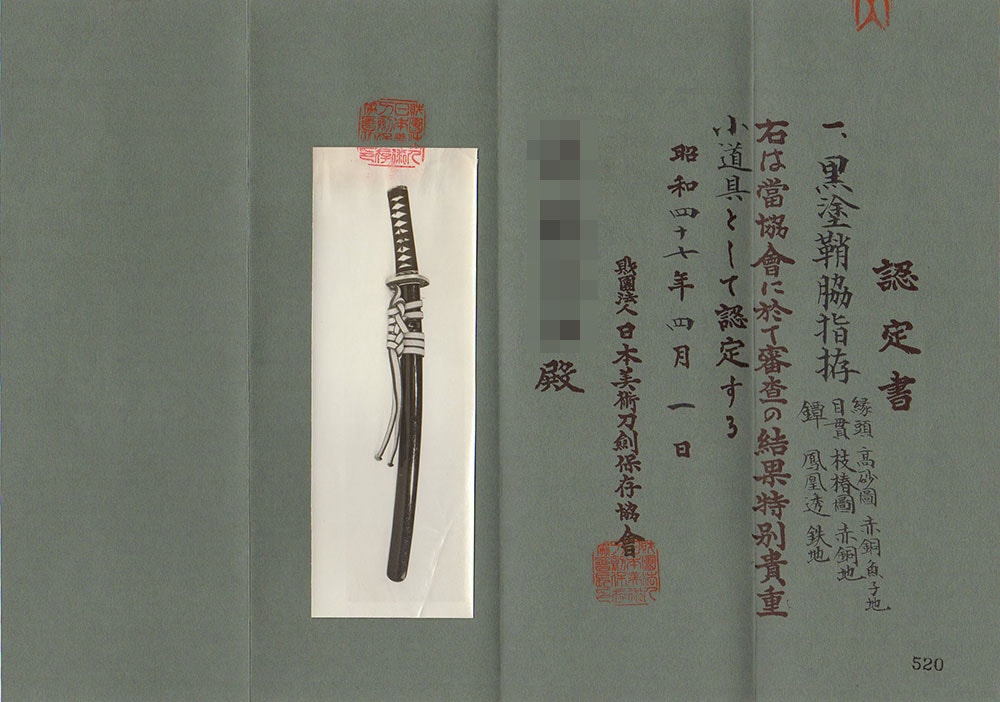 認定書
一、黒塗鞘脇指拵
縁頭 高砂圖 赤銅魚子地
目貫 枝椿圖 赤銅地
鐔 鳳凰透 鉄地
右は當協會に於て審査の結果特別貴重
小道具として認定する
昭和四十七年四月一日
財團法人日本美術刀劍保存協會
殿
520